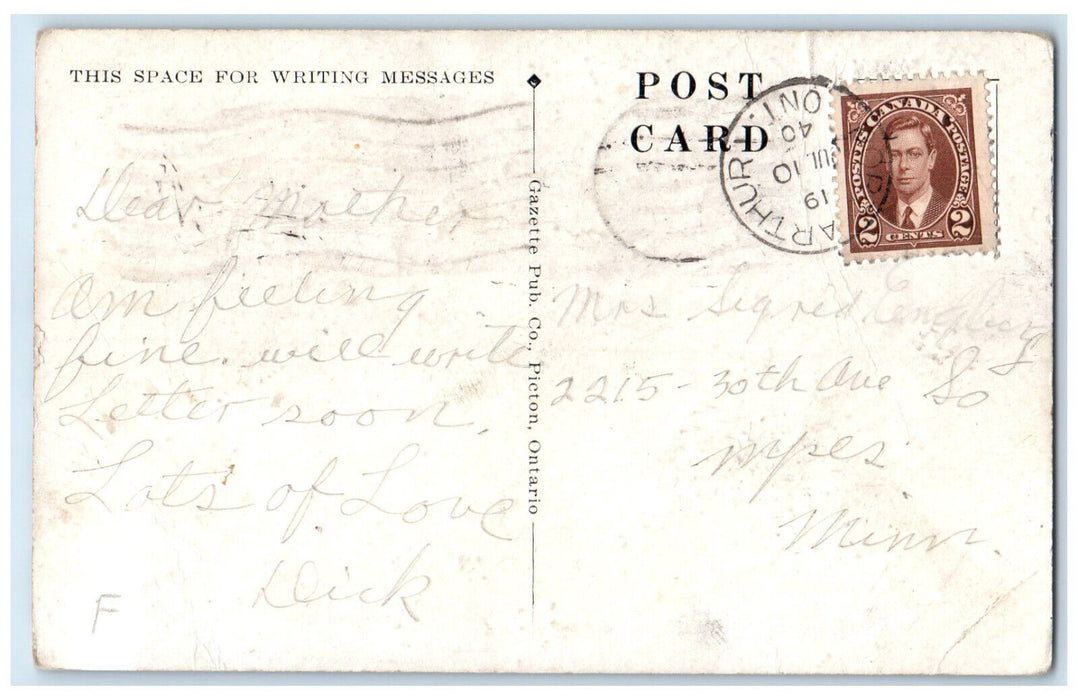 THIS SPACE FOR WRITING MESSAGES
Dear Mother
Am feeling
fine. will write
Letter soon.
Lots of Love
Dick
F
Gazette Pub. Co., Picton, Ontario
POST
CARD
ARTHUR ONT.
19
JUL 10
40
POSTES CANADA POSTAGE
2 CENTS 2
Mrs Sigrid
2215 - 30th Ave So
mpes
Minn.